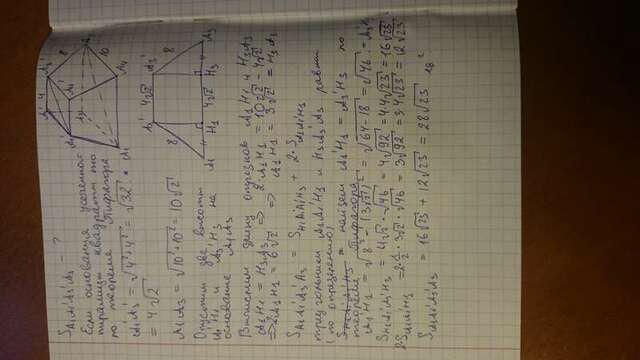 S A₁A₁'A₃'A₃ - ?
Если основания усеченной
пирамиды квадраты то
по теореме Пифагора
A₁'A₃' = √(4²+4²) = √32 =
= 4√2
A₁A₃ = √(10²+10²) = 10√2
Опустим две высоты
A₁'H₁ и A₃'H₃ на
основание A₁A₃
Вычислим длину отрезков A₁H₁ и H₃A₃
A₁H₁ = H₃A₃ ⇒ 2·A₁H₁ = 10√2 - 4√2
⇒ 2A₁H₁ = 6√2 ⇒ A₁H₁ = 3√2 = H₃A₃
S A₁A₁'A₃'A₃ = S H₁A₁'A₃'H₃ + 2·S A₁A₁'H₁
треугольники A₁A₁'H₁ и H₃A₃'A₃ равны
(по определению)
найдем A₁'H₁ = A₃'H₃ по
теореме Пифагора
A₁'H₁ = √(8² - (3√2)²) = √(64-18) = √46 = A₃'H₃
S H₁A₁'A₃'H₃ = 4√2 · √46 = 4√92 = 4·4√23 = 16√23
2·S A₁A₁'H₁ = 2·1/2·3√2·√46 = 3√92 = 3·4√23 = 12√23
S A₁A₁'A₃'A₃ = 16√23 + 12√23 = 28√23 см²
4
A₃'
8
10
A₄
A₁
A₁' 4√2 A₃'
8
8
A₁ H₁ 4√2 H₃ A₃